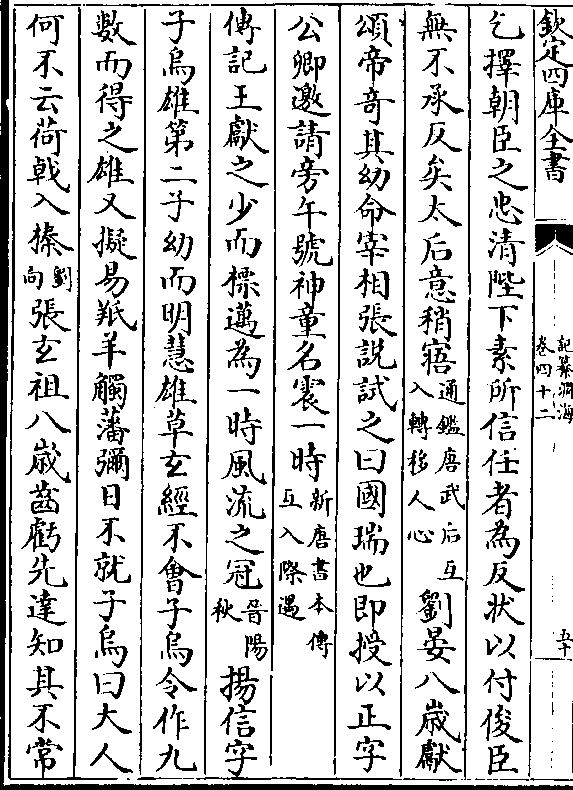 欽定四庫全書
記纂淵海
卷四十二
五十
乞擇朝臣之忠清陛下素所信任者為反狀以付俊臣
無不承反矣太后意稍寤通鑑唐武后互入轉移人心劉晏八嵗獻
頌帝竒其幼命宰相張説試之曰國瑞也即授以正字
公卿邀請旁午號神童名震一時新唐書本傳互入際遇
傳記王獻之少而標邁為一時風流之冠晉陽秋揚信字
子烏雄第二子幼而明慧雄草𤣥經不會子烏令作九
數而得之雄又擬易羝羊觸藩彌日不就子烏曰大人
何不云荷戟入榛劉向張𤣥祖八嵗齒虧先達知其不常